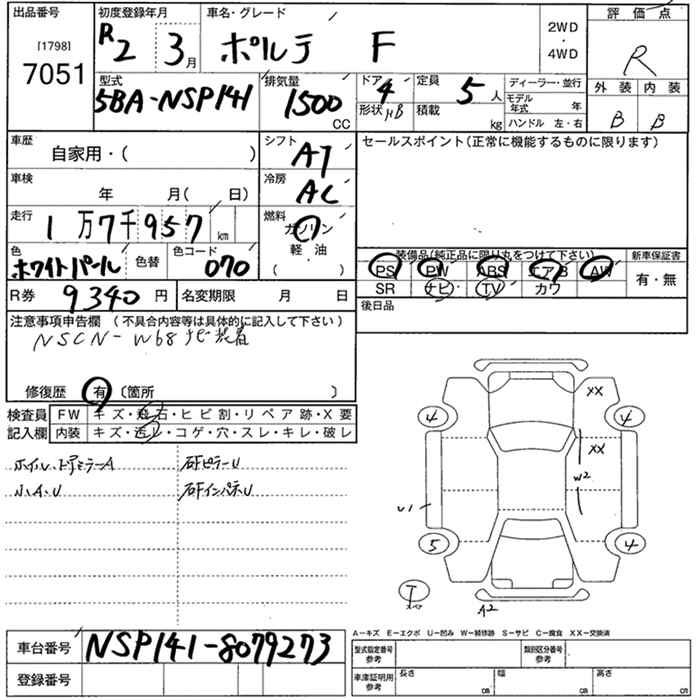 出品番号
[1798]
7051
初度登録年月
R2 3月
車名・グレード
ポルテ F
2WD
・
4WD
評価点
R
外装 内装
B B
型式
5BA-NSP141
排気量
1500
CC
ドア
4
形状 HB
定員
5人
積載
kg
ディーラー・並行
モデル年式 年
ハンドル 左・右
車歴
自家用・( )
シフト
AT
セールスポイント(正常に機能するものに限ります)
車検
年 月( 日)
冷房
AC
走行
1万7千957km
燃料
ガソリン
・
軽油
( )
色
ホワイトパール
色替
色コード
070
装備品(純正品に限り丸をつけて下さい)
PS PW ABS エアB AW
SR ナビ TV カワ
新車保証書
有・無
R券 9340円
名変期限 月 日
後日品
注意事項申告欄 (不具合内容等は具体的に記入して下さい)
NSCN-W68 ナビ装着
修復歴 有 〔箇所 〕
検査員
記入欄
FW キズ・飛石・ヒビ割・リペア跡・X要
内装 キズ・汚レ・コゲ・穴・スレ・キレ・破レ
ホイル、ドアミラーA
小A、U
右Fピラーu
右Fインパネu
XX
4
4
XX
W2
U1
5
4
T
A2
A−キズ E−エクボ U−凹み W−補修跡 S−サビ C−腐食 XX−交換済
車台番号 NSP141-8079273
登録番号
型式指定番号
参考
類別区分番号
参考
車庫証明用
参考
長さ
cm
幅
cm
高さ
cm